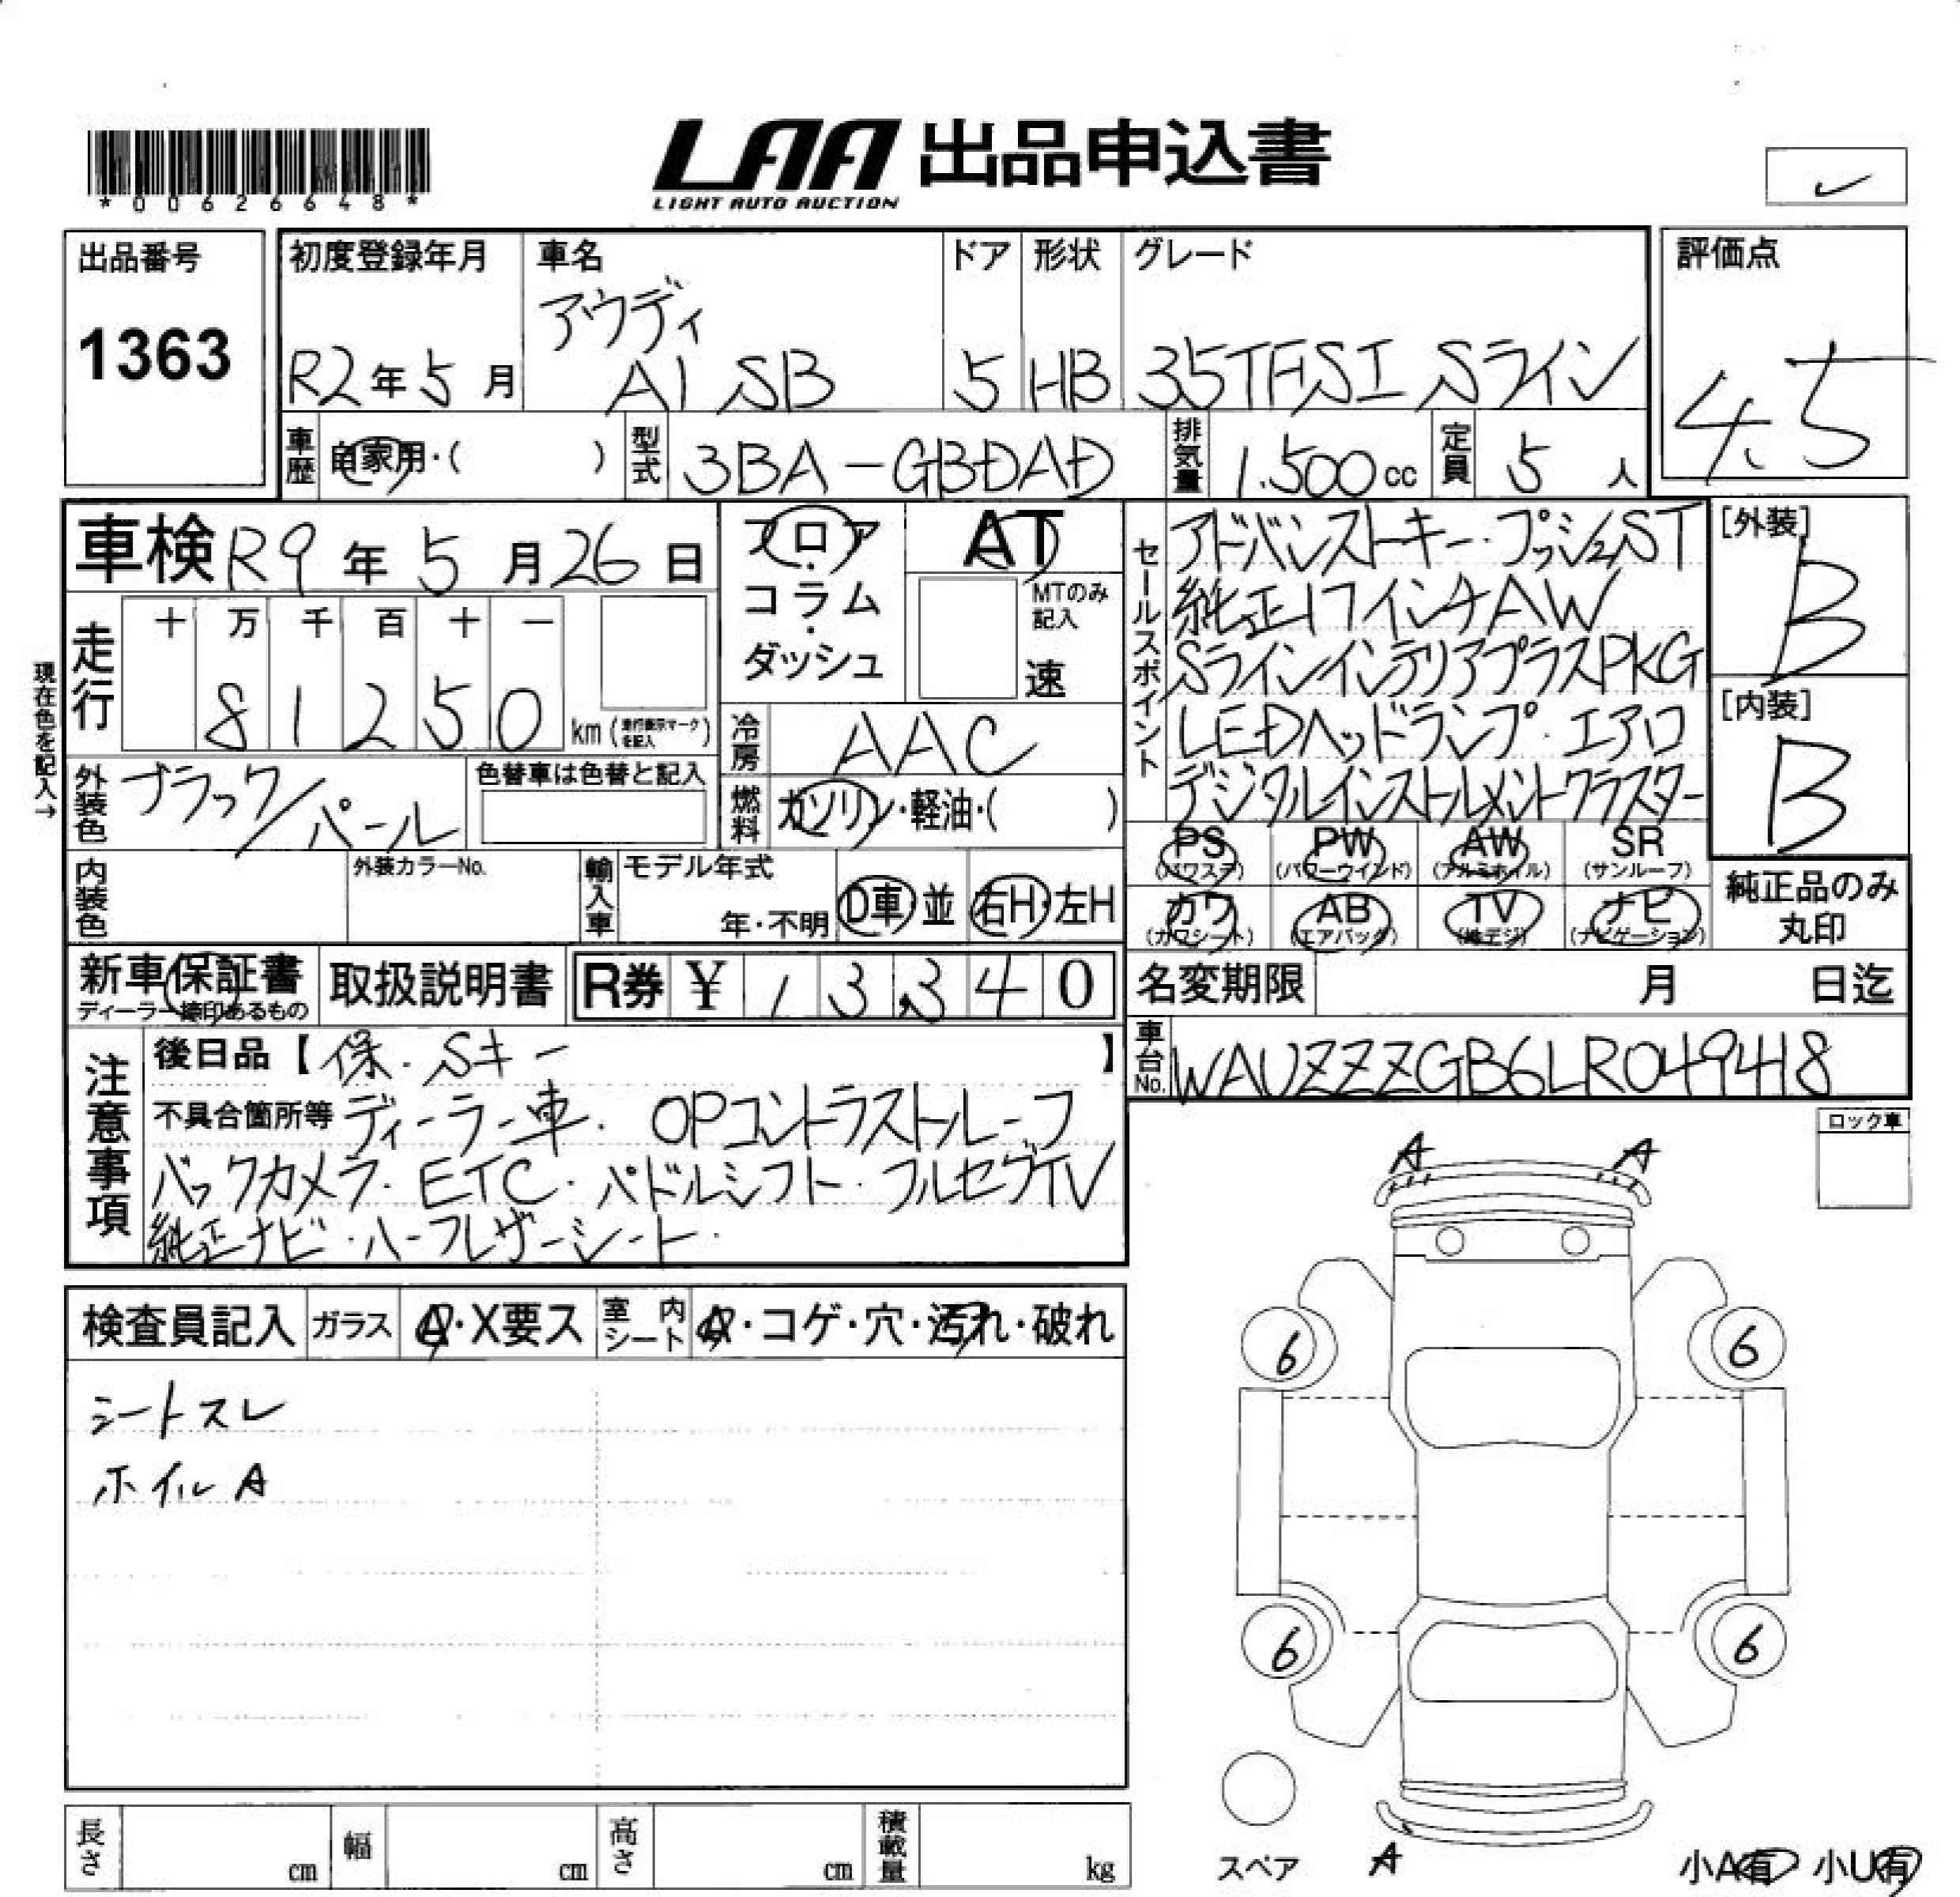 *00626648*
LAA 出品申込書
LIGHT AUTO AUCTION
出品番号
1363
初度登録年月
R2年5月
車名
アウディ
A1 SB
ドア
5
形状
HB
グレード
35TFSI Sライン
評価点
4.5
車歴 自家用・( )
型式 3BA-GBDAD
排気量 1.500cc
定員 5人
車検 R9年5月26日
フロア・コラム・ダッシュ
AT
MTのみ記入
速
セールスポイント
アドバンストキー・プッシュST
純正17インチAW
SラインインテリアプラスPKG
LEDヘッドランプ・エアロ
デジタルインストルメントクラスター
[外装]
B
[内装]
B
現在色を記入→
走行
十 万 千 百 十 一
8 1 2 5 0 km (走行表示マークを記入)
冷房 AAC
外装色 ブラック/パール
色替車は色替と記入
燃料 ガソリン・軽油・( )
内装色
外装カラーNo.
輸入車
モデル年式
年・不明
D車・並
右H・左H
PS (パワステ)
PW (パワーウインド)
AW (アルミホイル)
SR (サンルーフ)
カワ (カワシート)
AB (エアバッグ)
TV (地デジ)
ナビ (ナビゲーション)
純正品のみ
丸印
新車保証書
ディーラー捺印あるもの
取扱説明書
R券 ¥ 13,340
名変期限 月 日迄
車台No. WAUZZZGB6LR049418
注意事項
後日品【保.Sキー】
不具合箇所等 ディーラー車. OPコントラストルーフ
バックカメラ・ETC・パドルシフト・フルセグTV
純正ナビ・ハーフレザーシート・
ロック車
A A
検査員記入 ガラス A・X要ス 室内シート A・コゲ・穴・汚れ・破れ
シートスレ
ホイルA
6 6
6 6
スペア
A
小A有 小U有
長さ cm 幅 cm 高さ cm 積載量 kg